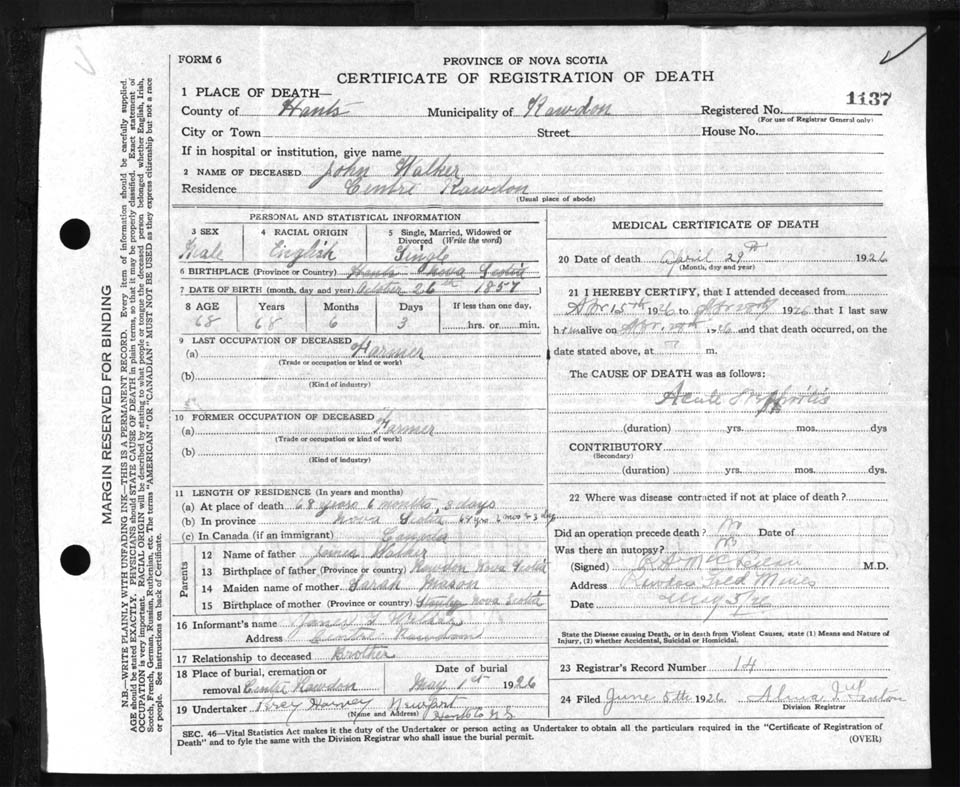 FORM 6
PROVINCE OF NOVA SCOTIA
CERTIFICATE OF REGISTRATION OF DEATH
1137
1 PLACE OF DEATH—
County of Hants Municipality of Rawdon Registered No.
(For use of Registrar General only)
City or Town Street House No.
If in hospital or institution, give name
2 NAME OF DECEASED John Walker
Residence Centre Rawdon
(Usual place of abode)
PERSONAL AND STATISTICAL INFORMATION
3 SEX 4 RACIAL ORIGIN 5 Single, Married, Widowed or Divorced (Write the word)
Male English Single
6 BIRTHPLACE (Province or Country) Hants Nova Scotia
7 DATE OF BIRTH (month, day and year) October 26th 1857
8 AGE Years Months Days If less than one day,
68 68 6 3 hrs. or min.
9 LAST OCCUPATION OF DECEASED
(a) Farmer
(Trade or occupation or kind or work)
(b)
(Kind of industry)
10 FORMER OCCUPATION OF DECEASED
(a) Farmer
(Trade or occupation or kind of work)
(b)
(Kind of industry)
11 LENGTH OF RESIDENCE (In years and months)
(a) At place of death 68 years 6 months, 3 days
(b) In province Nova Scotia 68 yrs 6 mos 3 day
(c) In Canada (if an immigrant) Canada
Parents
12 Name of father James Walker
13 Birthplace of father (Province or country) Rawdon Nova Scotia
14 Maiden name of mother Sarah Mason
15 Birthplace of mother (Province or country) Stanley Nova Scotia
16 Informant's name James
Address Centre Rawdon
17 Relationship to deceased Brother
18 Place of burial, cremation or Date of burial
removal Centre Rawdon May 1st 1926
19 Undertaker Percy Harvey Newport
(Name and Address) Hants Co N S
MEDICAL CERTIFICATE OF DEATH
20 Date of death April 29th 1926
(Month, day and year)
21 I HEREBY CERTIFY, that I attended deceased from
Apr 15th 1926 to 1926 that I last saw
him alive on Apr 1926 and that death occurred, on the
date stated above, at m.
The CAUSE OF DEATH was as follows:
Acute
(duration) yrs. mos. dys
CONTRIBUTORY
(Secondary)
(duration) yrs. mos. dys.
22 Where was disease contracted if not at place of death?
Did an operation precede death? No Date of
Was there an autopsy? No
(Signed) M.D.
Address Rawdon Gold Mines
Date May 3/26
State the Disease causing Death, or in death from Violent Causes, state (1) Means and Nature of Injury, (2) whether Accidental, Suicidal or Homicidal.
23 Registrar's Record Number 14
24 Filed June 5th 1926 Alma
Division Registrar
SEC. 46—Vital Statistics Act makes it the duty of the Undertaker or person acting as Undertaker to obtain all the particulars required in the "Certificate of Registration of
Death" and to fyle the same with the Division Registrar who shall issue the burial permit.
(OVER)
MARGIN RESERVED FOR BINDING
N.B.—WRITE PLAINLY WITH UNFADING INK—THIS IS A PERMANENT RECORD. Every item of information should be carefully supplied.
AGE should be stated EXACTLY. PHYSICIANS should STATE CAUSE OF DEATH in plain terms, so that it may be properly classified. Exact statement of
OCCUPATION is very important. RACIAL ORIGIN will be described by stating to what people or tongue the deceased person belonged whether English, Irish,
Scotch, French, German, Russian, Ruthenian, etc. The terms "AMERICAN" OR "CANADIAN" MUST NOT BE USED as they express citizenship but not a race
or people. See instructions on back of Certificate.